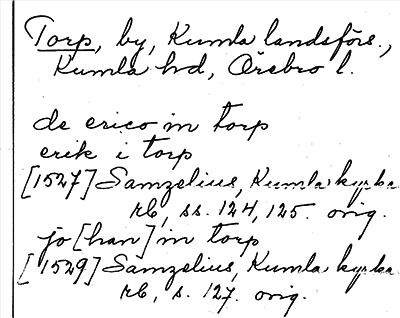 Torp, by, Kumla landsförs.,
Kumla hd, Örebro l.
de erico in torp
erik i torp
[1527] Samzelius, Kumla kyrka
rb, ss. 124, 125. orig.
jo[han] in torp
[1529] Samzelius, Kumla kyrka
rb, s. 127. orig.